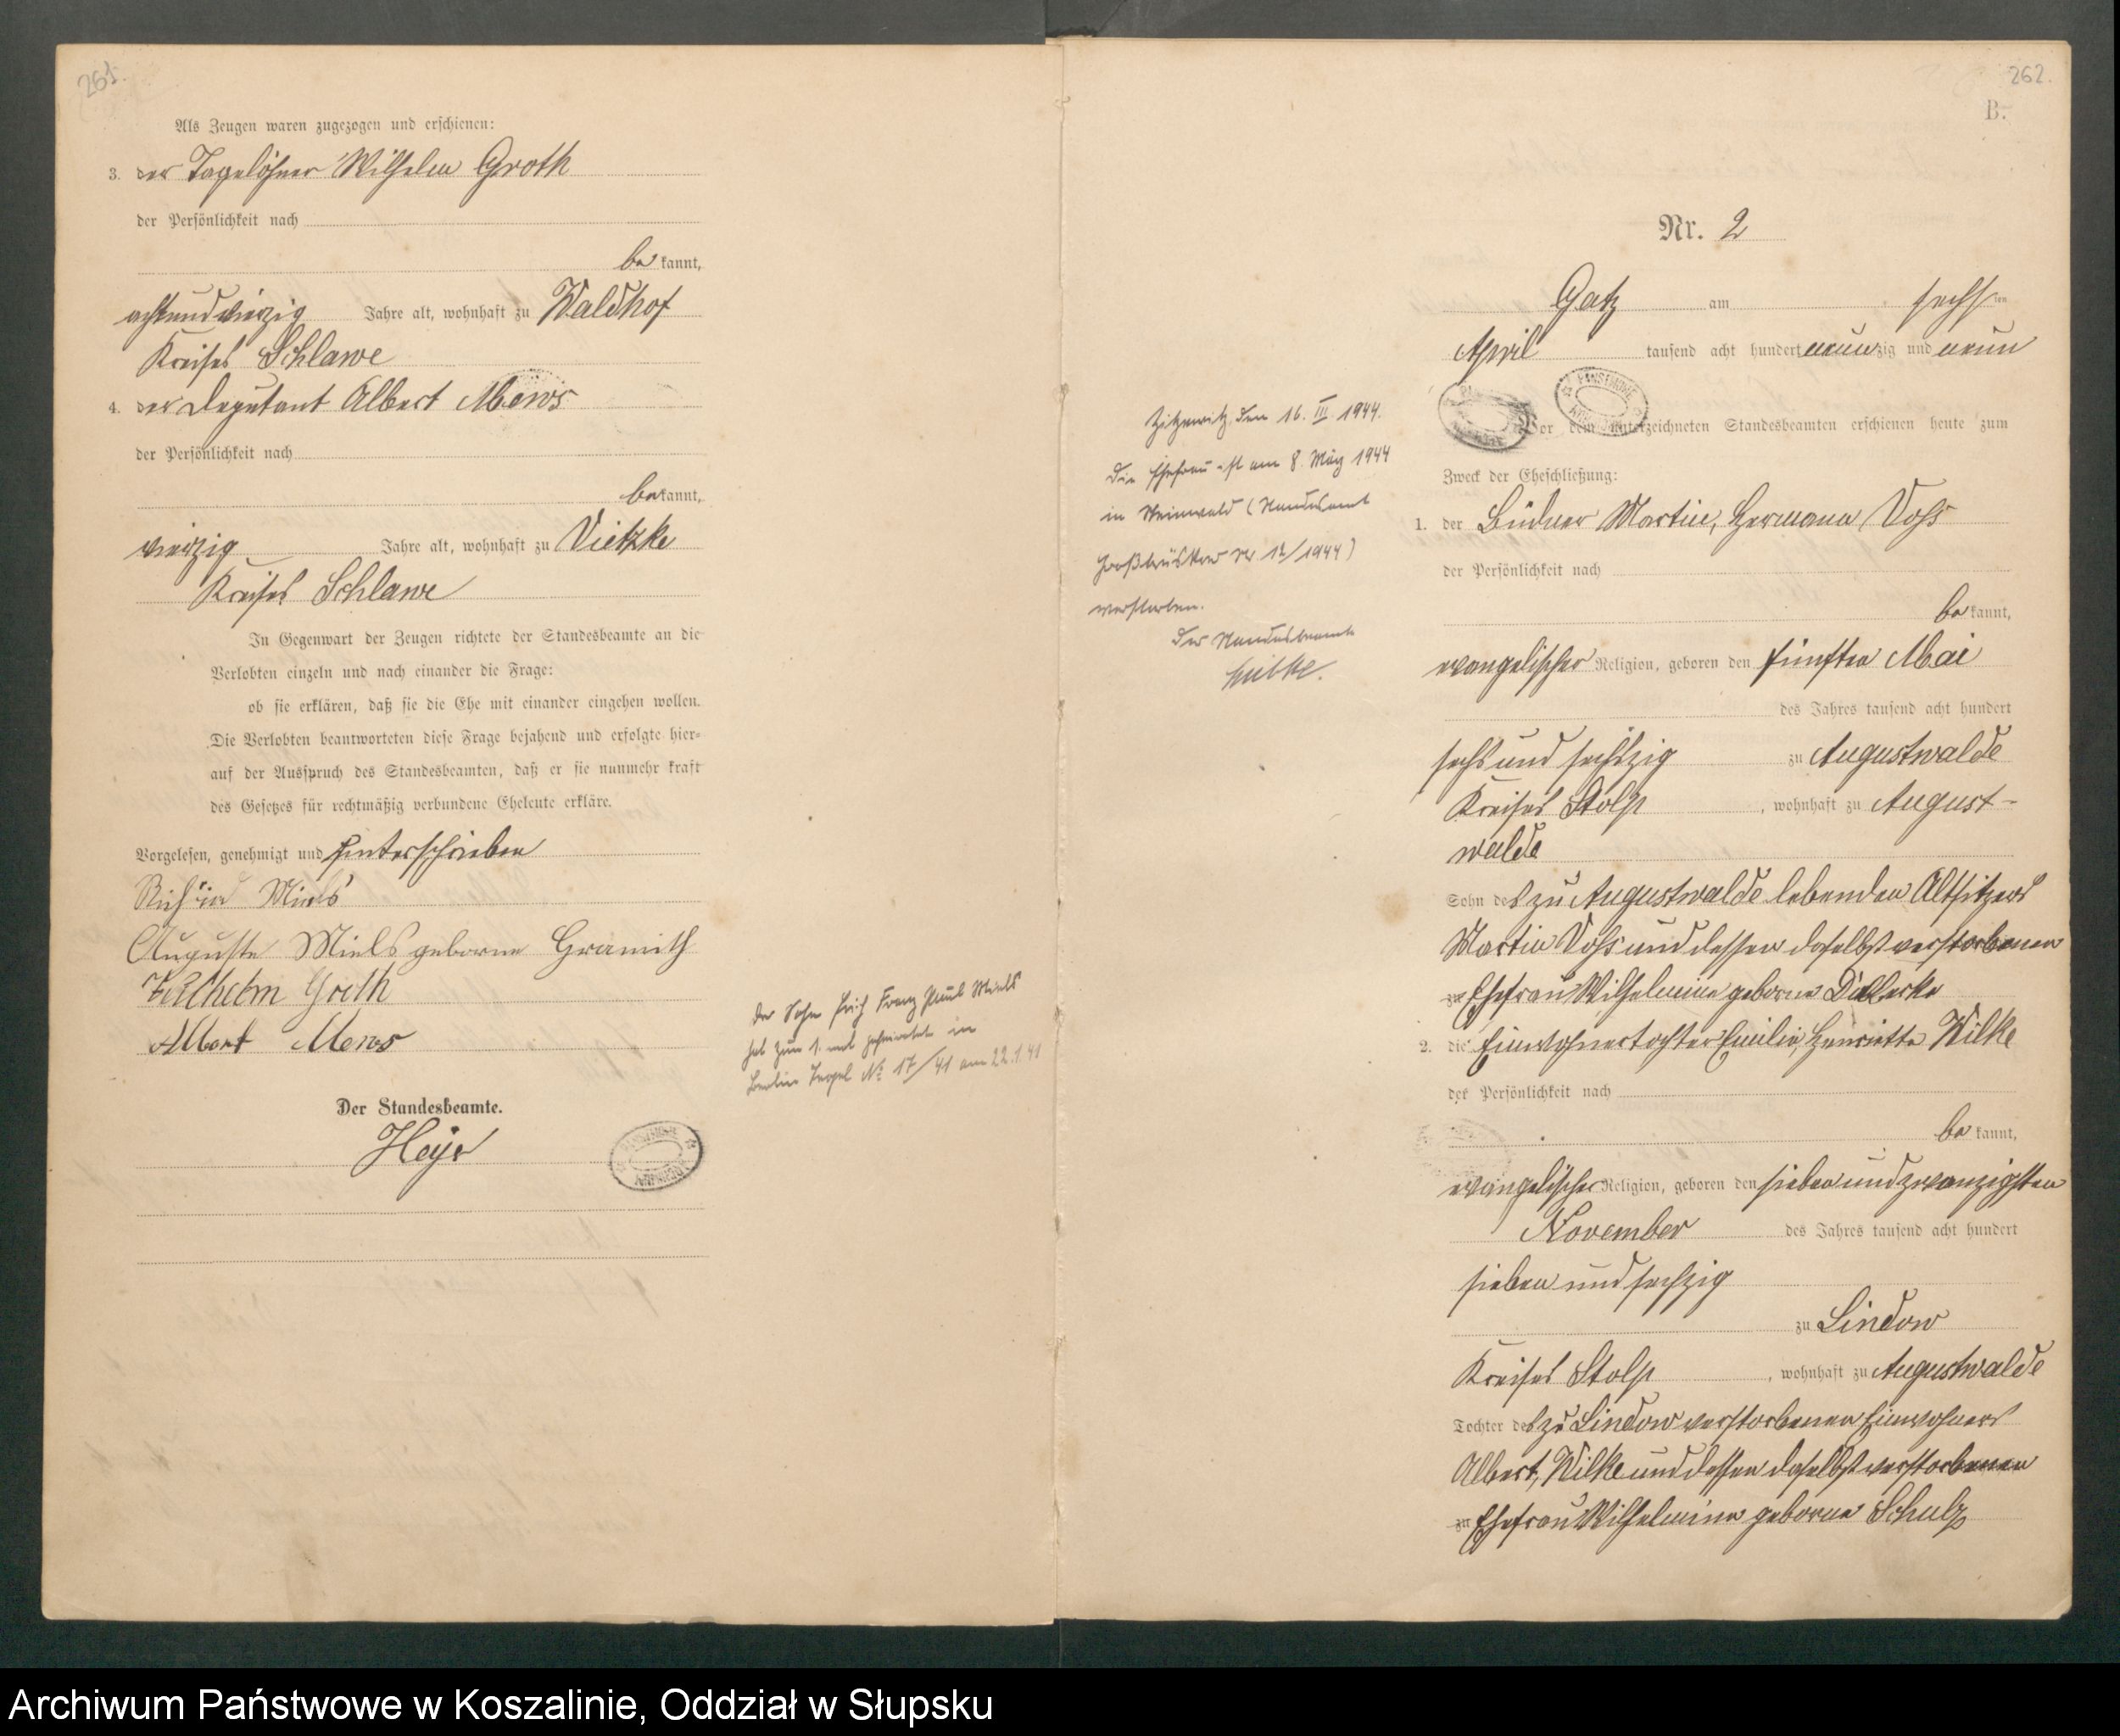 261.
Als Zeugen waren zugezogen und erschienen:
3. der Tagelöhner Wilhelm Groth
der Persönlichkeit nach
be kannt,
achtundvierzig Jahre alt, wohnhaft zu Waldhof
Kreises Schlawe
4. der Deputant Albert Mews
der Persönlichkeit nach
be kannt,
vierzig Jahre alt, wohnhaft zu Vietzke
Kreises Schlawe
In Gegenwart der Zeugen richtete der Standesbeamte an die
Verlobten einzeln und nach einander die Frage:
ob sie erklären, daß sie die Ehe mit einander eingehen wollen.
Die Verlobten beantworteten diese Frage bejahend und erfolgte hier-
auf der Ausspruch des Standesbeamten, daß er sie nunmehr kraft
des Gesetzes für rechtmäßig verbundene Eheleute erkläre.
Vorgelesen, genehmigt und unterschrieben
Miels
Auguste Miels geborne Gramith
Wilhelm Groth
Albert Mews
Der Standesbeamte.
der Sohn Erich Franz Paul Miels
hat zum 1. mal geheiratet in
Berlin Tegel No 17/41 am 22.1.41
262.
B.
Nr. 2
Gatz am sechsten
April tausend acht hundert neunzig und neun
Vor dem unterzeichneten Standesbeamten erschienen heute zum
Zweck der Eheschließung:
1. der Büdner Martin, Hermann Voß
der Persönlichkeit nach
be kannt,
evangelischer Religion, geboren den fünften Mai
des Jahres tausend acht hundert
sechs und sechszig zu Augustwalde
Kreises Stolp, wohnhaft zu August-
walde
Sohn des zu Augustwalde lebenden Altsitzers
Martin Voß und dessen daselbst verstorbenen
zu Ehefrau Wilhelmine geborne
2. die Einwohnertochter Emilie, Henriette Wilke
der Persönlichkeit nach
be kannt,
evangelischer Religion, geboren den sieben und zwanzigsten
November des Jahres tausend acht hundert
sieben und sechzig
zu Lindow
Kreises Stolp, wohnhaft zu Augustwalde
Tochter des zu Lindow verstorbenen Einwohners
Albert, Wilke und dessen daselbst verstorbenen
zu Ehefrau Wilhelmine geborne Schulz
Zitzewitz den 16. III. 1944.
Die Ehefrau ist am 8. März 1944
in (Standesamt
Großbrüskow Nr 12/1944)
verstorben.
Der Standesbeamte
Archiwum Państwowe w Koszalinie, Oddział w Słupsku